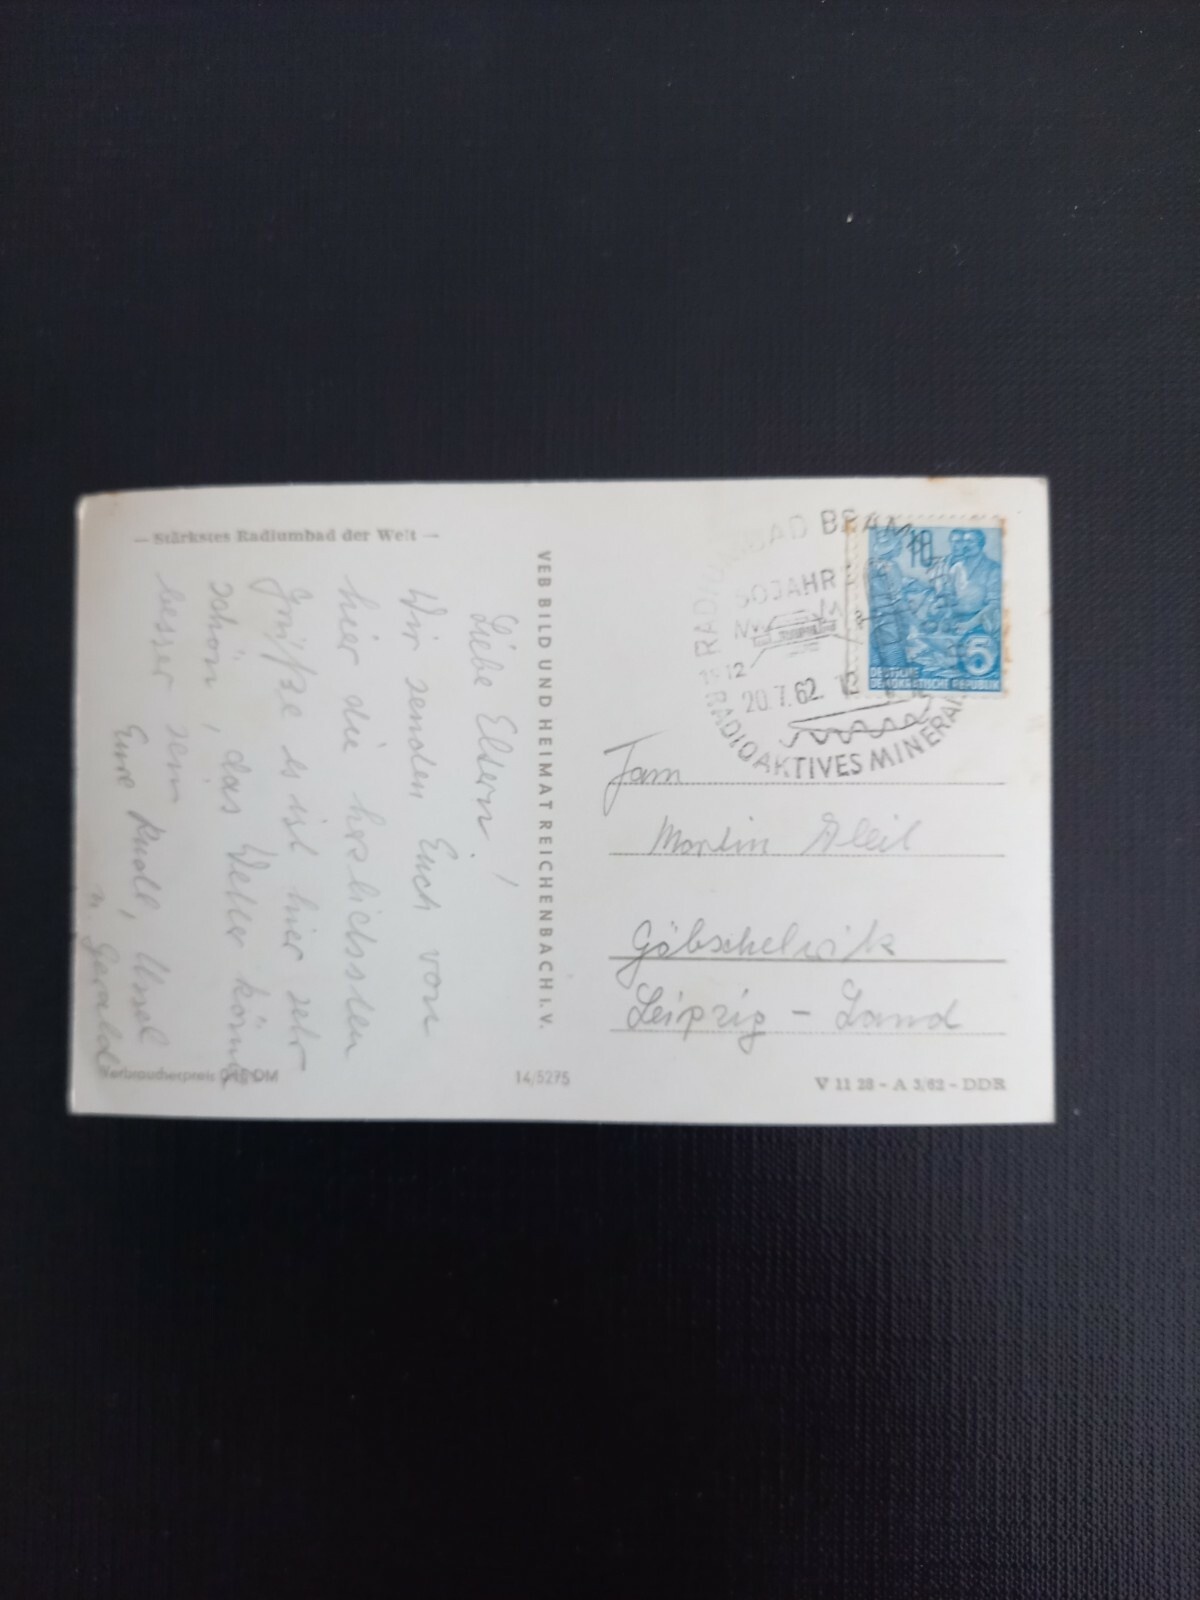 — Stärkstes Radiumbad der Welt —
Liebe Eltern!
Wir senden Euch von
hier die herzlichsten
Grüße es ist hier sehr
schön, das Wetter könnte
besser sein
Eure Rudll, Ursel
u. Gerald
Verbraucherpreis DM
14/5275
VEB BILD UND HEIMAT REICHENBACH i. V.
RADIUMBAD BRAM
50 JAHR
1912
20.7.62. 12
RADIOAKTIVES MINERAL
10
5
DEUTSCHE
DEMOKRATISCHE REPUBLIK
Fam
Martin
Göbschelwitz
Leipzig - Land
V 11 28 - A 3/62 - DDR